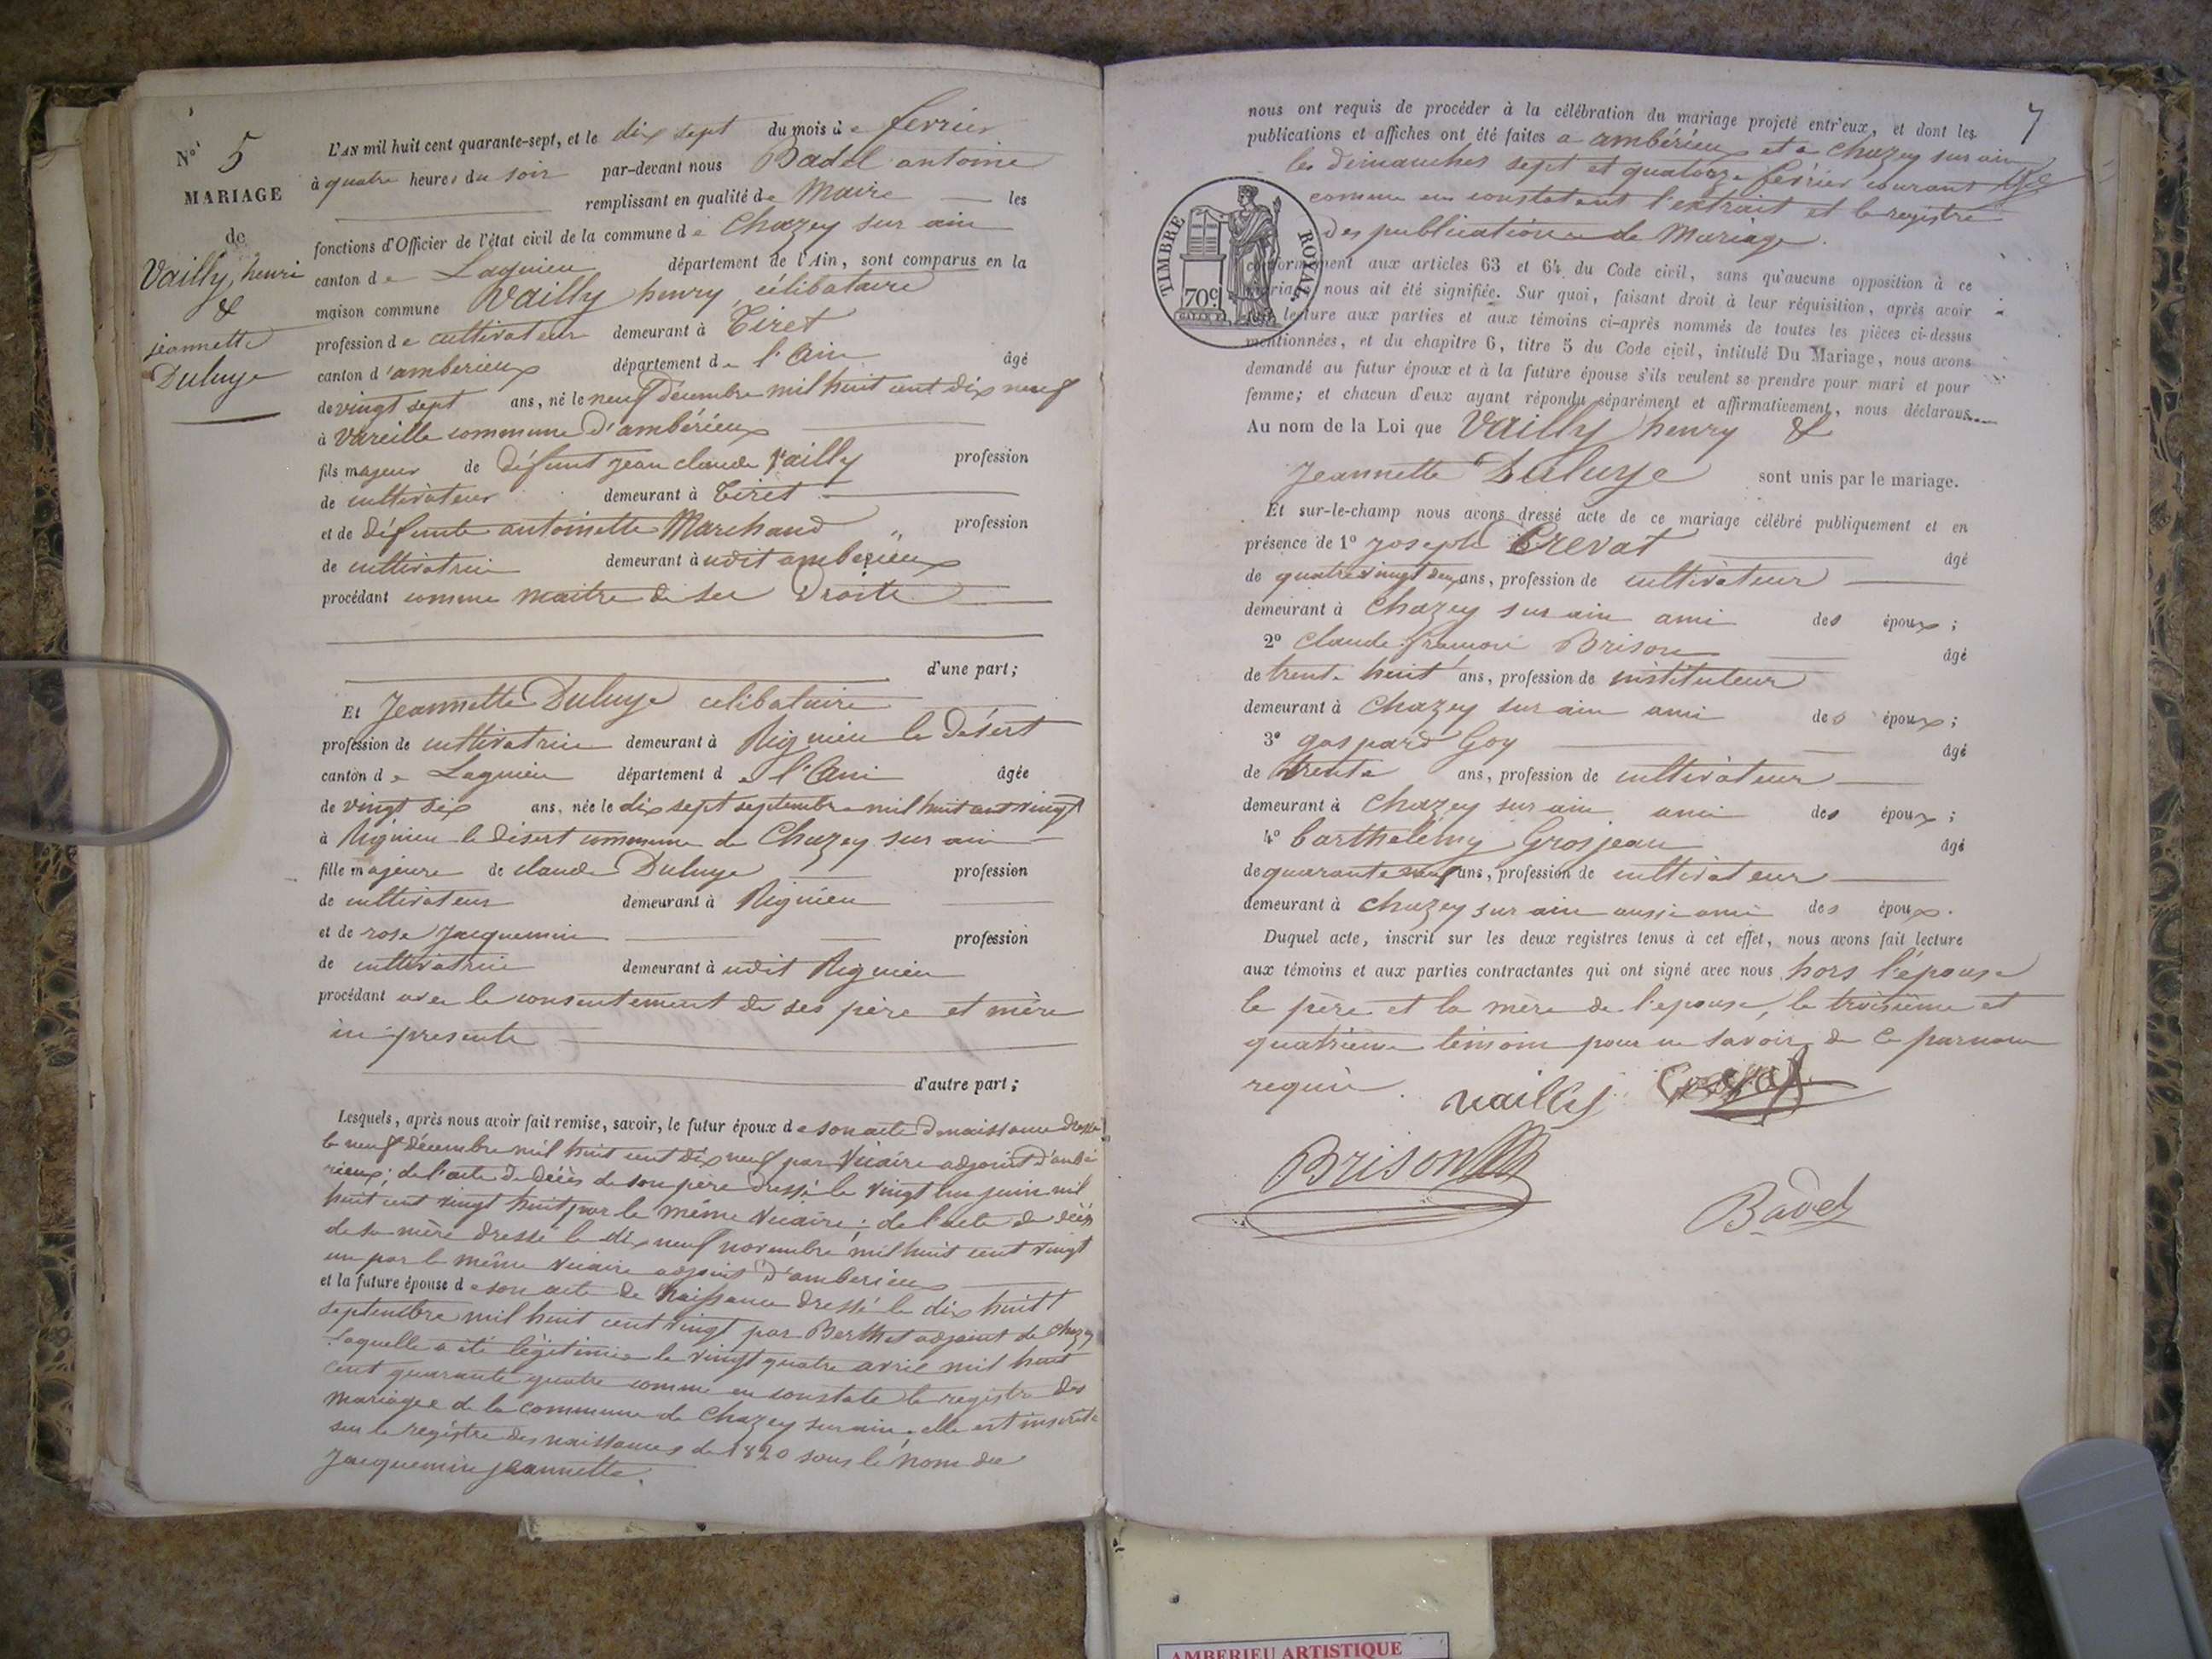 N° 5
MARIAGE
de
Vailly, henri
&
jeannette
Duluye
L'AN mil huit cent quarante-sept, et le dix sept du mois de fevrier
à quatre heures du soir par-devant nous Badel antoine
remplissant en qualité de Maire les
fonctions d'Officier de l'état civil de la commune de Chazey sur ain
canton de Lagnieu département de l'Ain, sont comparus en la
maison commune Vailly henry, célibataire
profession de cultivateur demeurant à Tiret
canton d'amberieux département de l'Ain âgé
de vingt sept ans, né le neuf décembre mil huit cent dix neuf
à Vareille commune d'ambérieux
fils majeur de défunt jean claude Vailly profession
de cultivateur demeurant à Tiret
et de défunte antoinette Marchand " profession
de cultivatrice demeurant à udit amberieux
procédant comme maitre de ses Droits
d'une part;
Et Jeannette Duluye celibataire
profession de cultivatrice demeurant à Rignieu le Désert
canton de Lagnieu département de l'Ain âgée
de vingt six ans, née le dix sept septembre mil huit cent vingt
à Rignieu le Désert commune de Chazey sur ain
fille majeure de claude Duluye profession
de cultivateur demeurant à Rignieu
et de rose Jacquemin profession
de cultivatrice demeurant à udit Rignieu
procédant avec le consentement de ses père et mère
ici presents
d'autre part;
Lesquels, après nous avoir fait remise, savoir, le futur époux de son acte de naissance dressé
le neuf décembre mil huit cent dix neuf par Vicaire adjoint d'ambé
rieux; de l'acte de décès de son père dressé le vingt un juin mil
huit cent vingt huit par le même Vicaire; de l'acte de décès
de sa mère dressé le dix neuf novembre mil huit cent vingt
un par le même Vicaire adjoint d'amberieux
et la future épouse de son acte de Naissance dressé le dix huit
septembre mil huit cent vingt par Berthet adjoint de Chazey
Laquelle a été légitimée le vingt quatre avril mil huit
cent quarante quatre comme en constate le registre des
mariages de la commune de Chazey sur ain, elle est inscrite
sur le registre des naissances de 1820 sous le nom de
Jacquemin jeannette.
7
nous ont requis de procéder à la célébration du mariage projeté entr'eux, et dont les
publications et affiches ont été faites a ambérieux et a chazey sur ain
les dimanches sept et quatorze fevrier courant
comme en constatent l'extrait et le registre
des publications de Mariage.
TIMBRE ROYAL
70c
conformément aux articles 63 et 64 du Code civil, sans qu'aucune opposition à ce
mariage nous ait été signifiée. Sur quoi, faisant droit à leur réquisition, après avoir
lecture aux parties et aux témoins ci-après nommés de toutes les pièces ci-dessus
mentionnées, et du chapitre 6, titre 5 du Code civil, intitulé Du Mariage, nous avons
demandé au futur époux et à la future épouse s'ils veulent se prendre pour mari et pour
femme; et chacun d'eux ayant répondu séparément et affirmativement, nous déclarons
Au nom de la Loi que Vailly henry &
Jeannette Duluye sont unis par le mariage.
Et sur-le-champ nous avons dressé acte de ce mariage célébré publiquement et en
présence de 1° joseph Crevat âgé
de quatre vingt deux ans, profession de cultivateur
demeurant à Chazey sur ain ami des époux;
2° Claude francois Brison âgé
de trente huit ans, profession de instituteur
demeurant à Chazey sur ain ami des époux;
3° gaspard Goy âgé
de trente ans, profession de cultivateur
demeurant à Chazey sur ain ami des époux;
4° barthelemy Grosjean âgé
de quarante neuf ans, profession de cultivateur
demeurant à chazey sur ain aussi ami des époux.
Duquel acte, inscrit sur les deux registres tenus à cet effet, nous avons fait lecture
aux témoins et aux parties contractantes qui ont signé avec nous hors l'épouse
le père et la mère de l'epouse, le troisième et
quatrième témoin pour ne savoir de ce par nous
requis.
vailly Crevat
Brison
Badel
AMBERIEU ARTISTIQUE